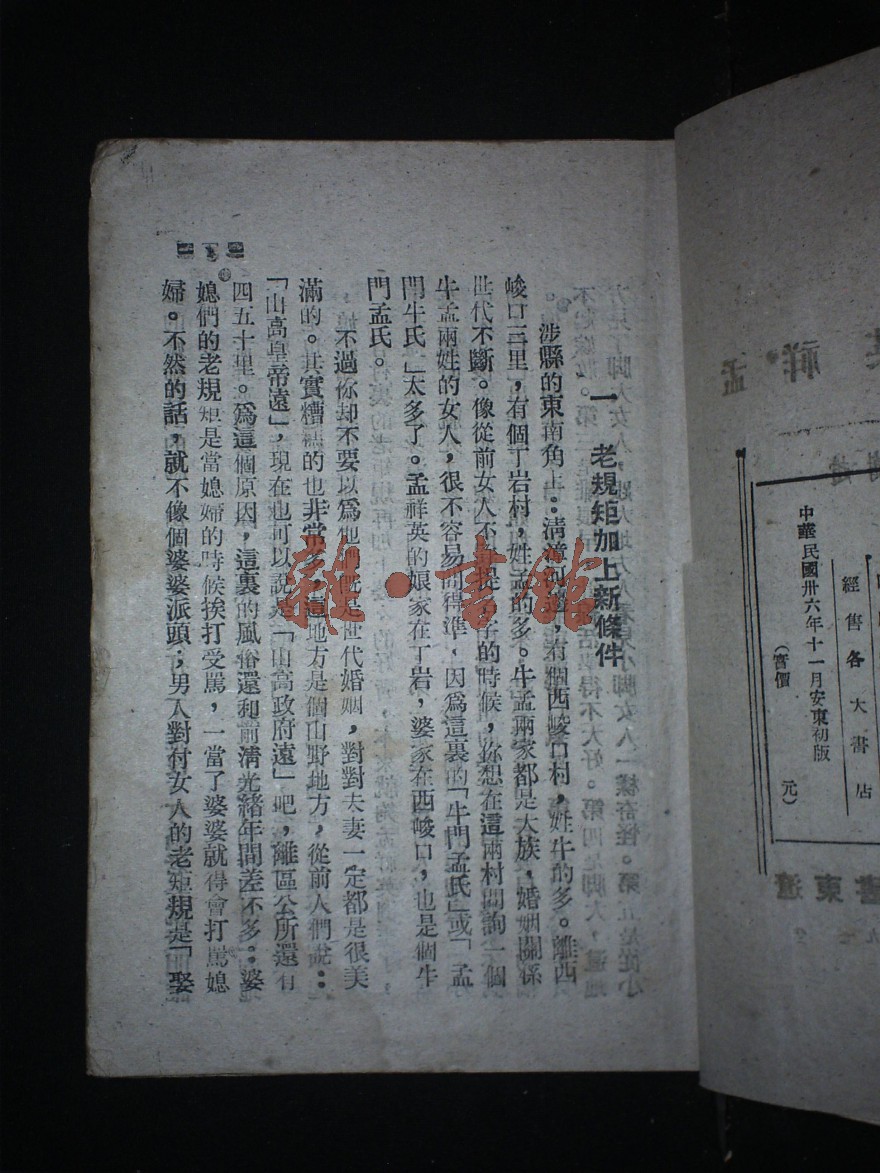 中華民國卅六年十一月安東初版
經售各大書店
(實價　　元)
一　老規矩加上新條件
涉縣的東南角上：清漳河邊，有個西峻口村，姓牛的多。離西
峻口三里，有個丁岩村，姓孟的多。牛孟兩家都是大族，婚姻關係
世代不斷。像從前女人不許提名字的時候，你想在這兩村問詢一個
牛孟兩姓的女人，很不容易問得準，因爲這裏的「牛門孟氏」或「孟
門牛氏」太多了。孟祥英的娘家在丁岩，婆家在西峻口，也是個牛
門孟氏。
不過你却不要以爲他們既是世代婚姻，對對夫妻一定都是很美
滿的。其實糟糕的也非常多，這地方是個山野地方，從前人們說：
「山高皇帝遠」，現在也可以說是「山高政府遠」吧，離區公所還有
四五十里。爲這個原因，這裏的風俗還和前清光緒年間差不多：婆
媳們的老規矩是當媳婦的時候挨打受駡，一當了婆婆就得會打駡媳
婦。不然的話，就不像個婆婆派頭；男人對付女人的老矩規是「娶
雜·書館